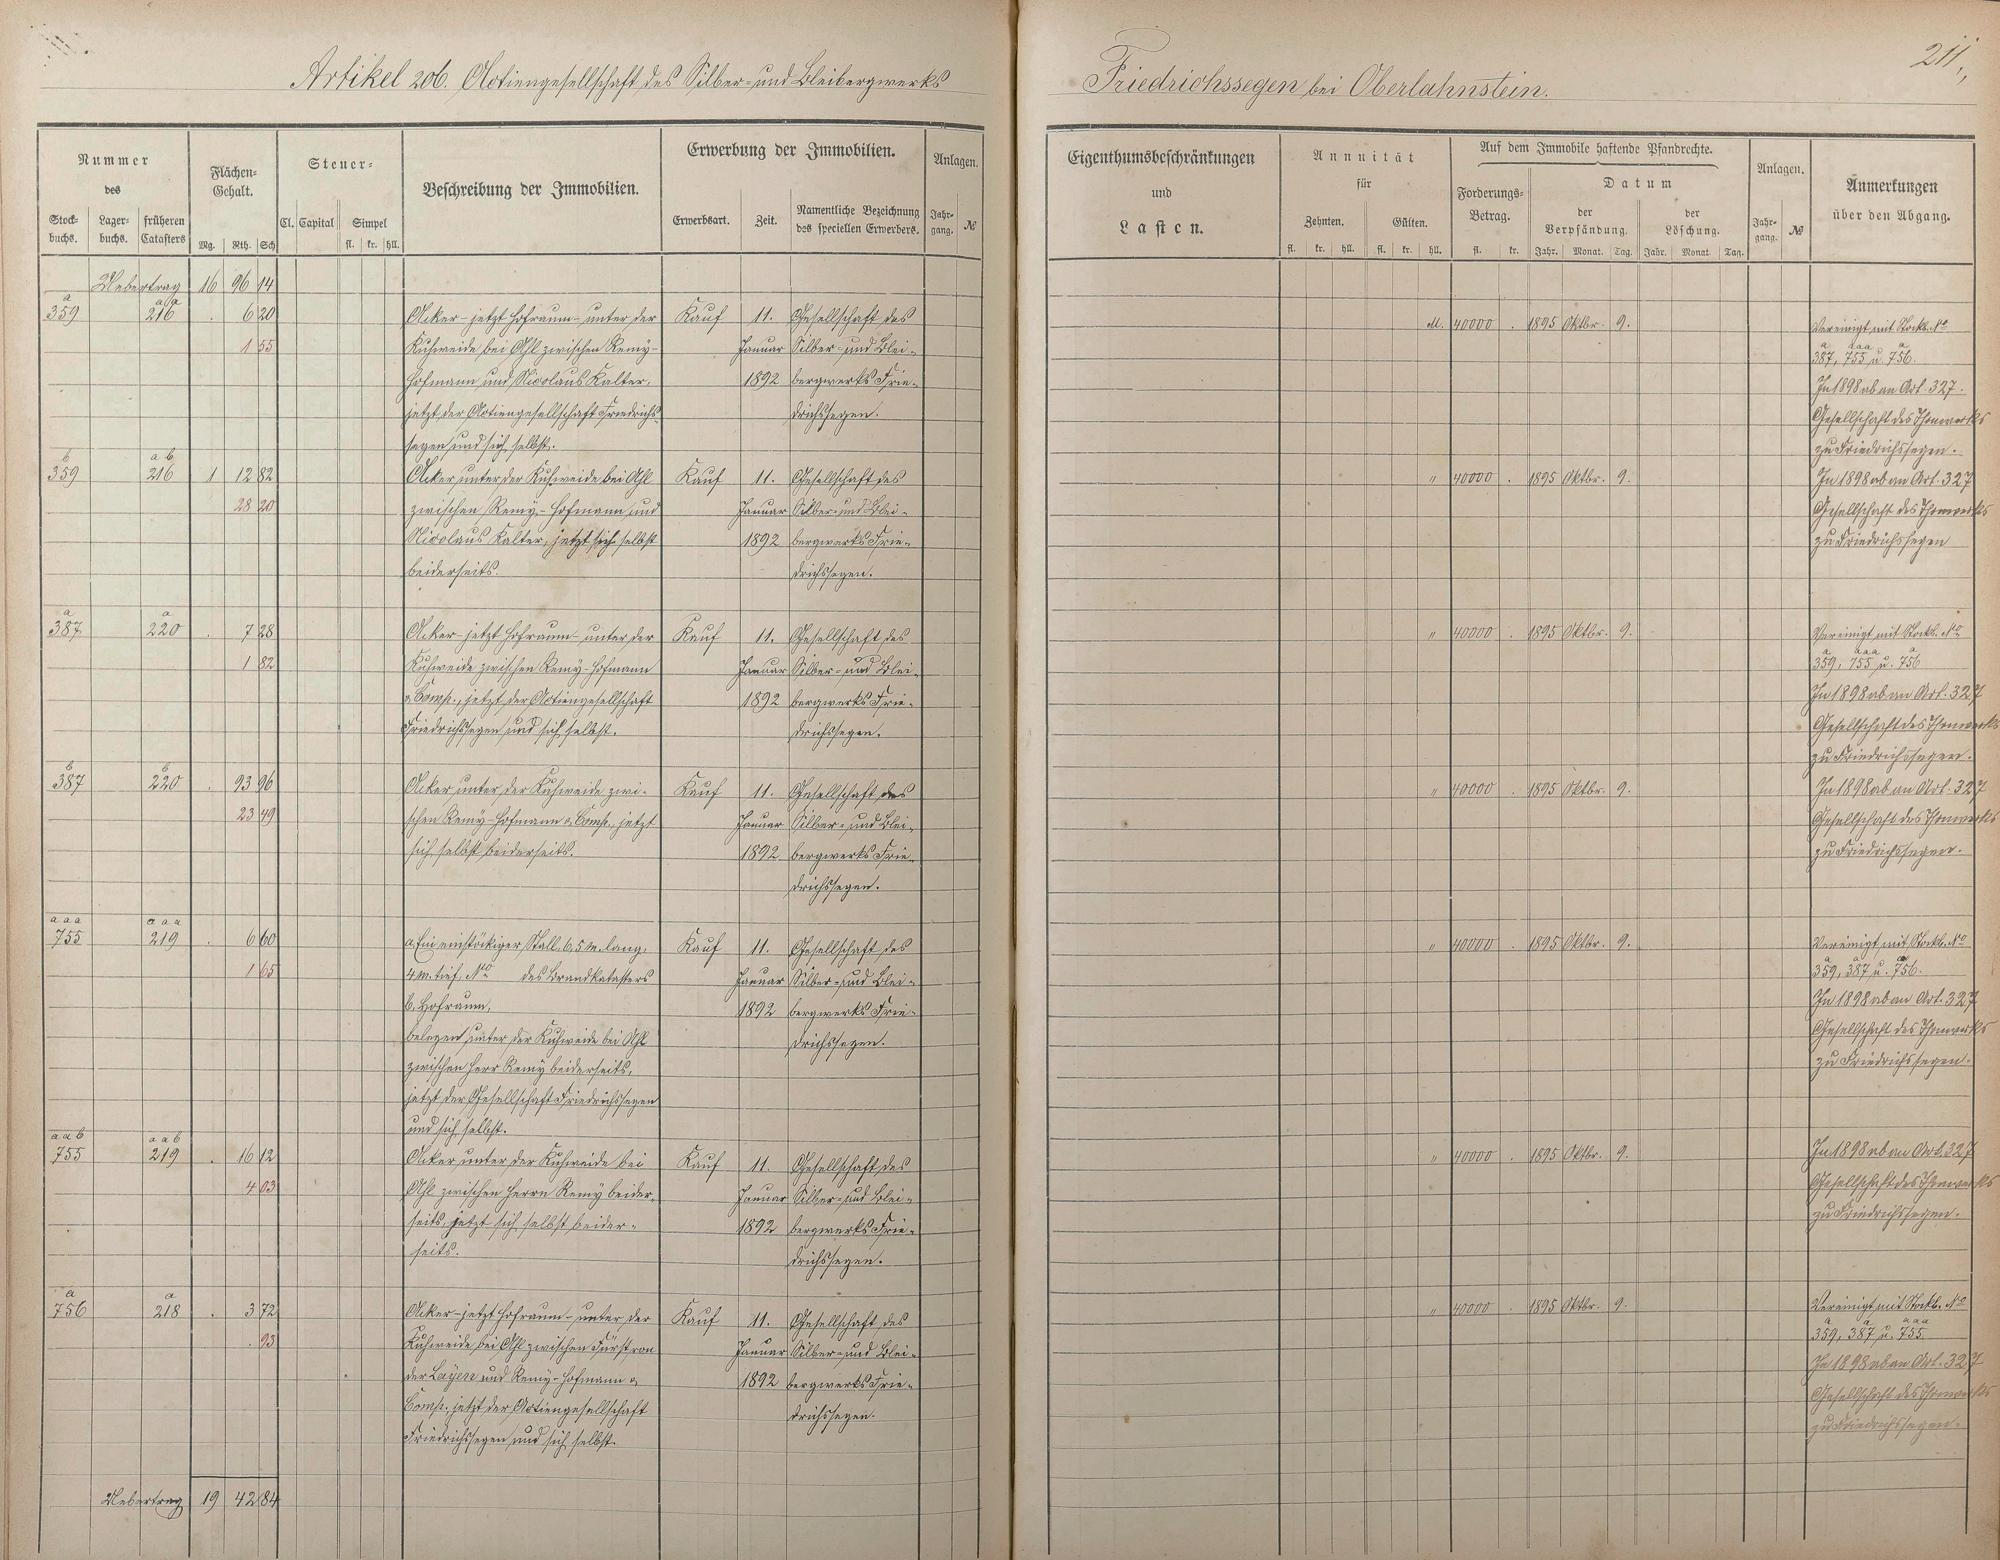 Artikel 206. Actiengesellschaft des Silber- und Bleibergwerks
Friedrichssegen bei Oberlahnstein.
211,
Nummer
des
Stock-
buchs.
Lager-
buchs.
früheren
Catasters
Flächen-
Gehalt.
Mg. Rth. Sch
Steuer-
Cl. Capital Simpel
fl. kr. hll.
Beschreibung der Immobilien.
Erwerbung der Immobilien.
Erwerbsart. Zeit.
Namentliche Bezeichnung
des speciellen Erwerbers.
Anlagen.
Jahr-
gang. №
Eigenthumsbeschränkungen
und
Lasten.
Annuität
für
Zehnten. Gülten.
fl. kr. hll. fl. kr. hll.
Auf dem Immobile haftende Pfandrechte.
Forderungs-
Betrag.
fl. kr.
Datum
der
Verpfändung.
der
Löschung.
Jahr. Monat. Tag. Jahr. Monat. Tag.
Anlagen.
Jahr-
gang. №
Anmerkungen
über den Abgang.
Uebertrag 16 96 14
a a a
359 216 . 6 20
1 55
Acker - jetzt Hofraum - unter der
Kuhweide bei Ahl zwischen Remy-
Hofmann und Nicolaus Kalter,
jetzt der Actiengesellschaft Friedrichs-
segen und sich selbst.
Kauf 11.
Januar
1892
Gesellschaft des
Silber- und Blei-
bergwerks Frie-
drichssegen.
M. 40000 . 1895 Oktbr. 9.
Vereinigt mit Stockb. No
a aaa a
387, 755 u. 756.
In 1898 ab an Art. 327.
Gesellschaft des Thonwerks
zu Friedrichssegen.
b a b
359 216 1 12 82
28 20
Acker unter der Kuhweide bei Ahl
zwischen Remy-Hofmann und
Nicolaus Kalter, jetzt sich selbst
beiderseits.
Kauf 11.
Januar
1892
Gesellschaft des
Silber- und Blei-
bergwerks Frie-
drichssegen.
" 40000 . 1895 Oktbr. 9.
In 1898 ab an Art. 327
Gesellschaft des Thonwerks
zu Friedrichssegen
a a
387 220 . 7 28
1 82
Acker - jetzt Hofraum - unter der
Kuhweide zwischen Remy-Hofmann
& Comp., jetzt der Actiengesellschaft
Friedrichssegen und sich selbst.
Kauf 11.
Januar
1892
Gesellschaft des
Silber- und Blei-
bergwerks Frie-
drichssegen.
" 40000 . 1895 Oktbr. 9.
Vereinigt mit Stockb. No
a aaa a
359, 755 u. 756
In 1898 ab an Art. 327
Gesellschaft des Thonwerks
zu Friedrichssegen.
b b
387 220 . 93 96
23 49
Acker unter der Kuhweide zwi-
schen Remy-Hofmann & Comp., jetzt
sich selbst beiderseits.
Kauf 11.
Januar
1892
Gesellschaft des
Silber- und Blei-
bergwerks Frie-
drichssegen.
" 40000 . 1895 Oktbr. 9.
In 1898 ab an Art. 327
Gesellschaft des Thonwerks
zu Friedrichssegen.
a a a a a a
755 219 . 6 60
1 65
a, Ein einstöckiger Stall, 6,5 m. lang,
4 m. tief, No des Brandkatasters
b, Hofraum,
belegen unter der Kuhweide bei Ahl
zwischen Herr Remy beiderseits,
jetzt der Gesellschaft Friedrichssegen
und sich selbst.
Kauf 11.
Januar
1892
Gesellschaft des
Silber- und Blei-
bergwerks Frie-
drichssegen.
" 40000 . 1895 Oktbr. 9.
Vereinigt mit Stockb. No
a a a
359, 387 u. 756.
In 1898 ab an Art. 327
Gesellschaft des Thonwerks
zu Friedrichssegen.
a a b a a b
755 219 . 16 12
4 03
Acker unter der Kuhweide bei
Ahl zwischen Herrn Remy beider-
seits, jetzt sich selbst beider-
seits.
Kauf 11.
Januar
1892
Gesellschaft des
Silber- und Blei-
bergwerks Frie-
drichssegen.
" 40000 . 1895 Oktbr. 9.
In 1898 ab an Art. 327
Gesellschaft des Thonwerks
zu Friedrichssegen.
a a
756 218 . 3 72
. 93
Acker - jetzt Hofraum - unter der
Kuhweide bei Ahl zwischen Fürst von
der Layen und Remy-Hofmann &
Comp., jetzt der Actiengesellschaft
Friedrichssegen und sich selbst.
Kauf 11.
Januar
1892
Gesellschaft des
Silber- und Blei-
bergwerks Frie-
drichssegen.
" 40000 . 1895 Oktbr. 9.
Vereinigt mit Stockb. No
a a aaa
359, 387 u. 755.
In 1898 ab an Art. 327
Gesellschaft des Thonwerks
zu Friedrichssegen.
Uebertrag 19 42 84